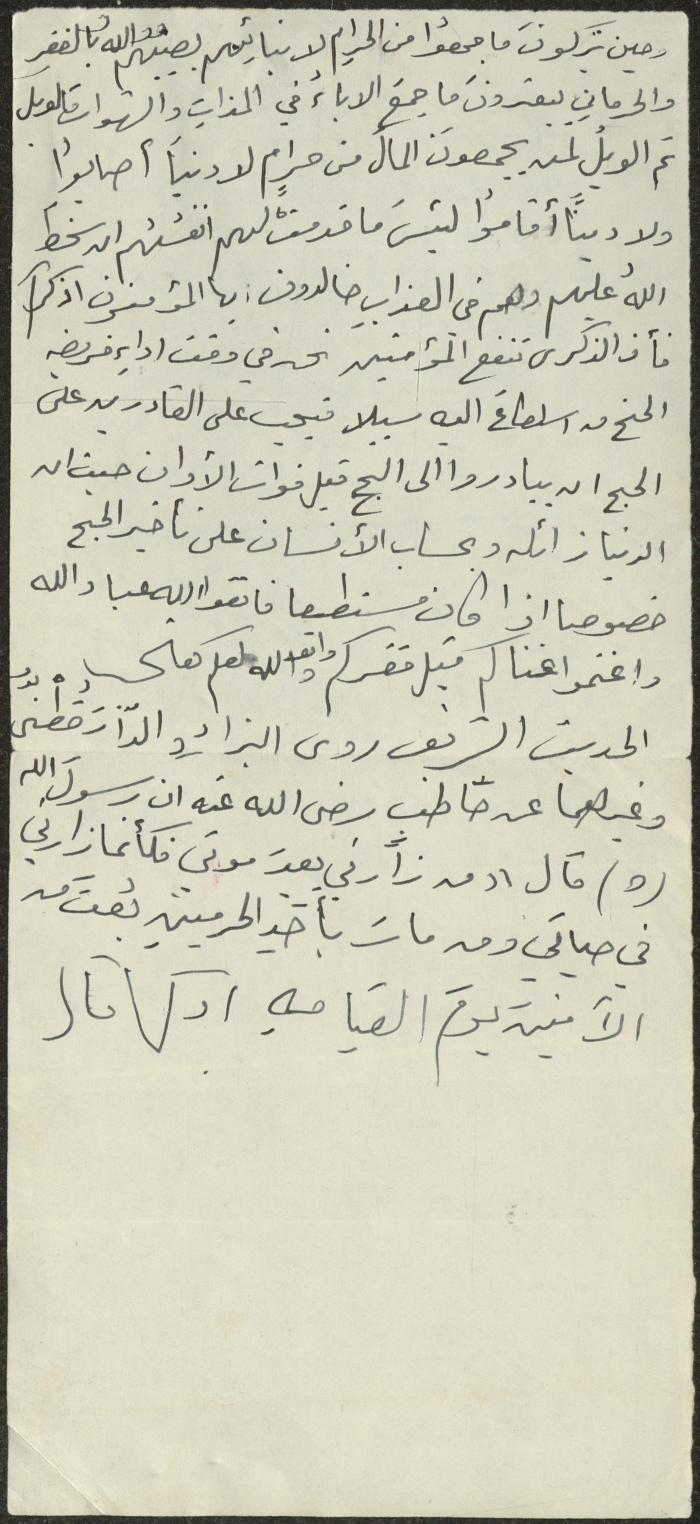 وحين يتركونَ ما جمعوُا من الحرامِ لابنائِهم يصيبُهم اللهُ بالفقرِ
والحرمانِ يبعثرونَ ما جمعَ الاباءُ في الملذاتِ والشهوات فالويل
ثم الويلُ لمن يجمعونَ المالَ من حرامٍ لا دنياً أصابوُا
ولا ديناً أقاموُا لبئسَ ما قدمتْ لهم انفسُهُم ان سخطَ
اللهُ عليهم وهم في العذابِ خالدون ايها المؤمنون اذكركم
فأن الذكرى تنفع المؤمنين نحن في وقت اداءِ فريضه
الحج من استطاعَ اليه سبيلا فيجب على القادرين على
الحج ان يبادروا الى الحج قبل فوات الأوان حيث ان
الدنيا زائله ويحساب الأنسان على تأخير الحج
خصوصا اذا كان مستطيعا فاتقوا الله عباد الله
واغتموا غناكم قبل فقركم واتقوا الله لعلكم تفلحـ
الحديث الشريف روى البزارُ والدّارَقُطْني
وغيرهما عن حاطب رضى الله عنه ان رسولَ الله
(ص) قال ((من زارني بعدَ موتي فكأنما زارني
في حياتي ومن مات بأحدِ الحرمينِ بُعثَ من
الآمنينَ يومَ القيامهِ او كما قال